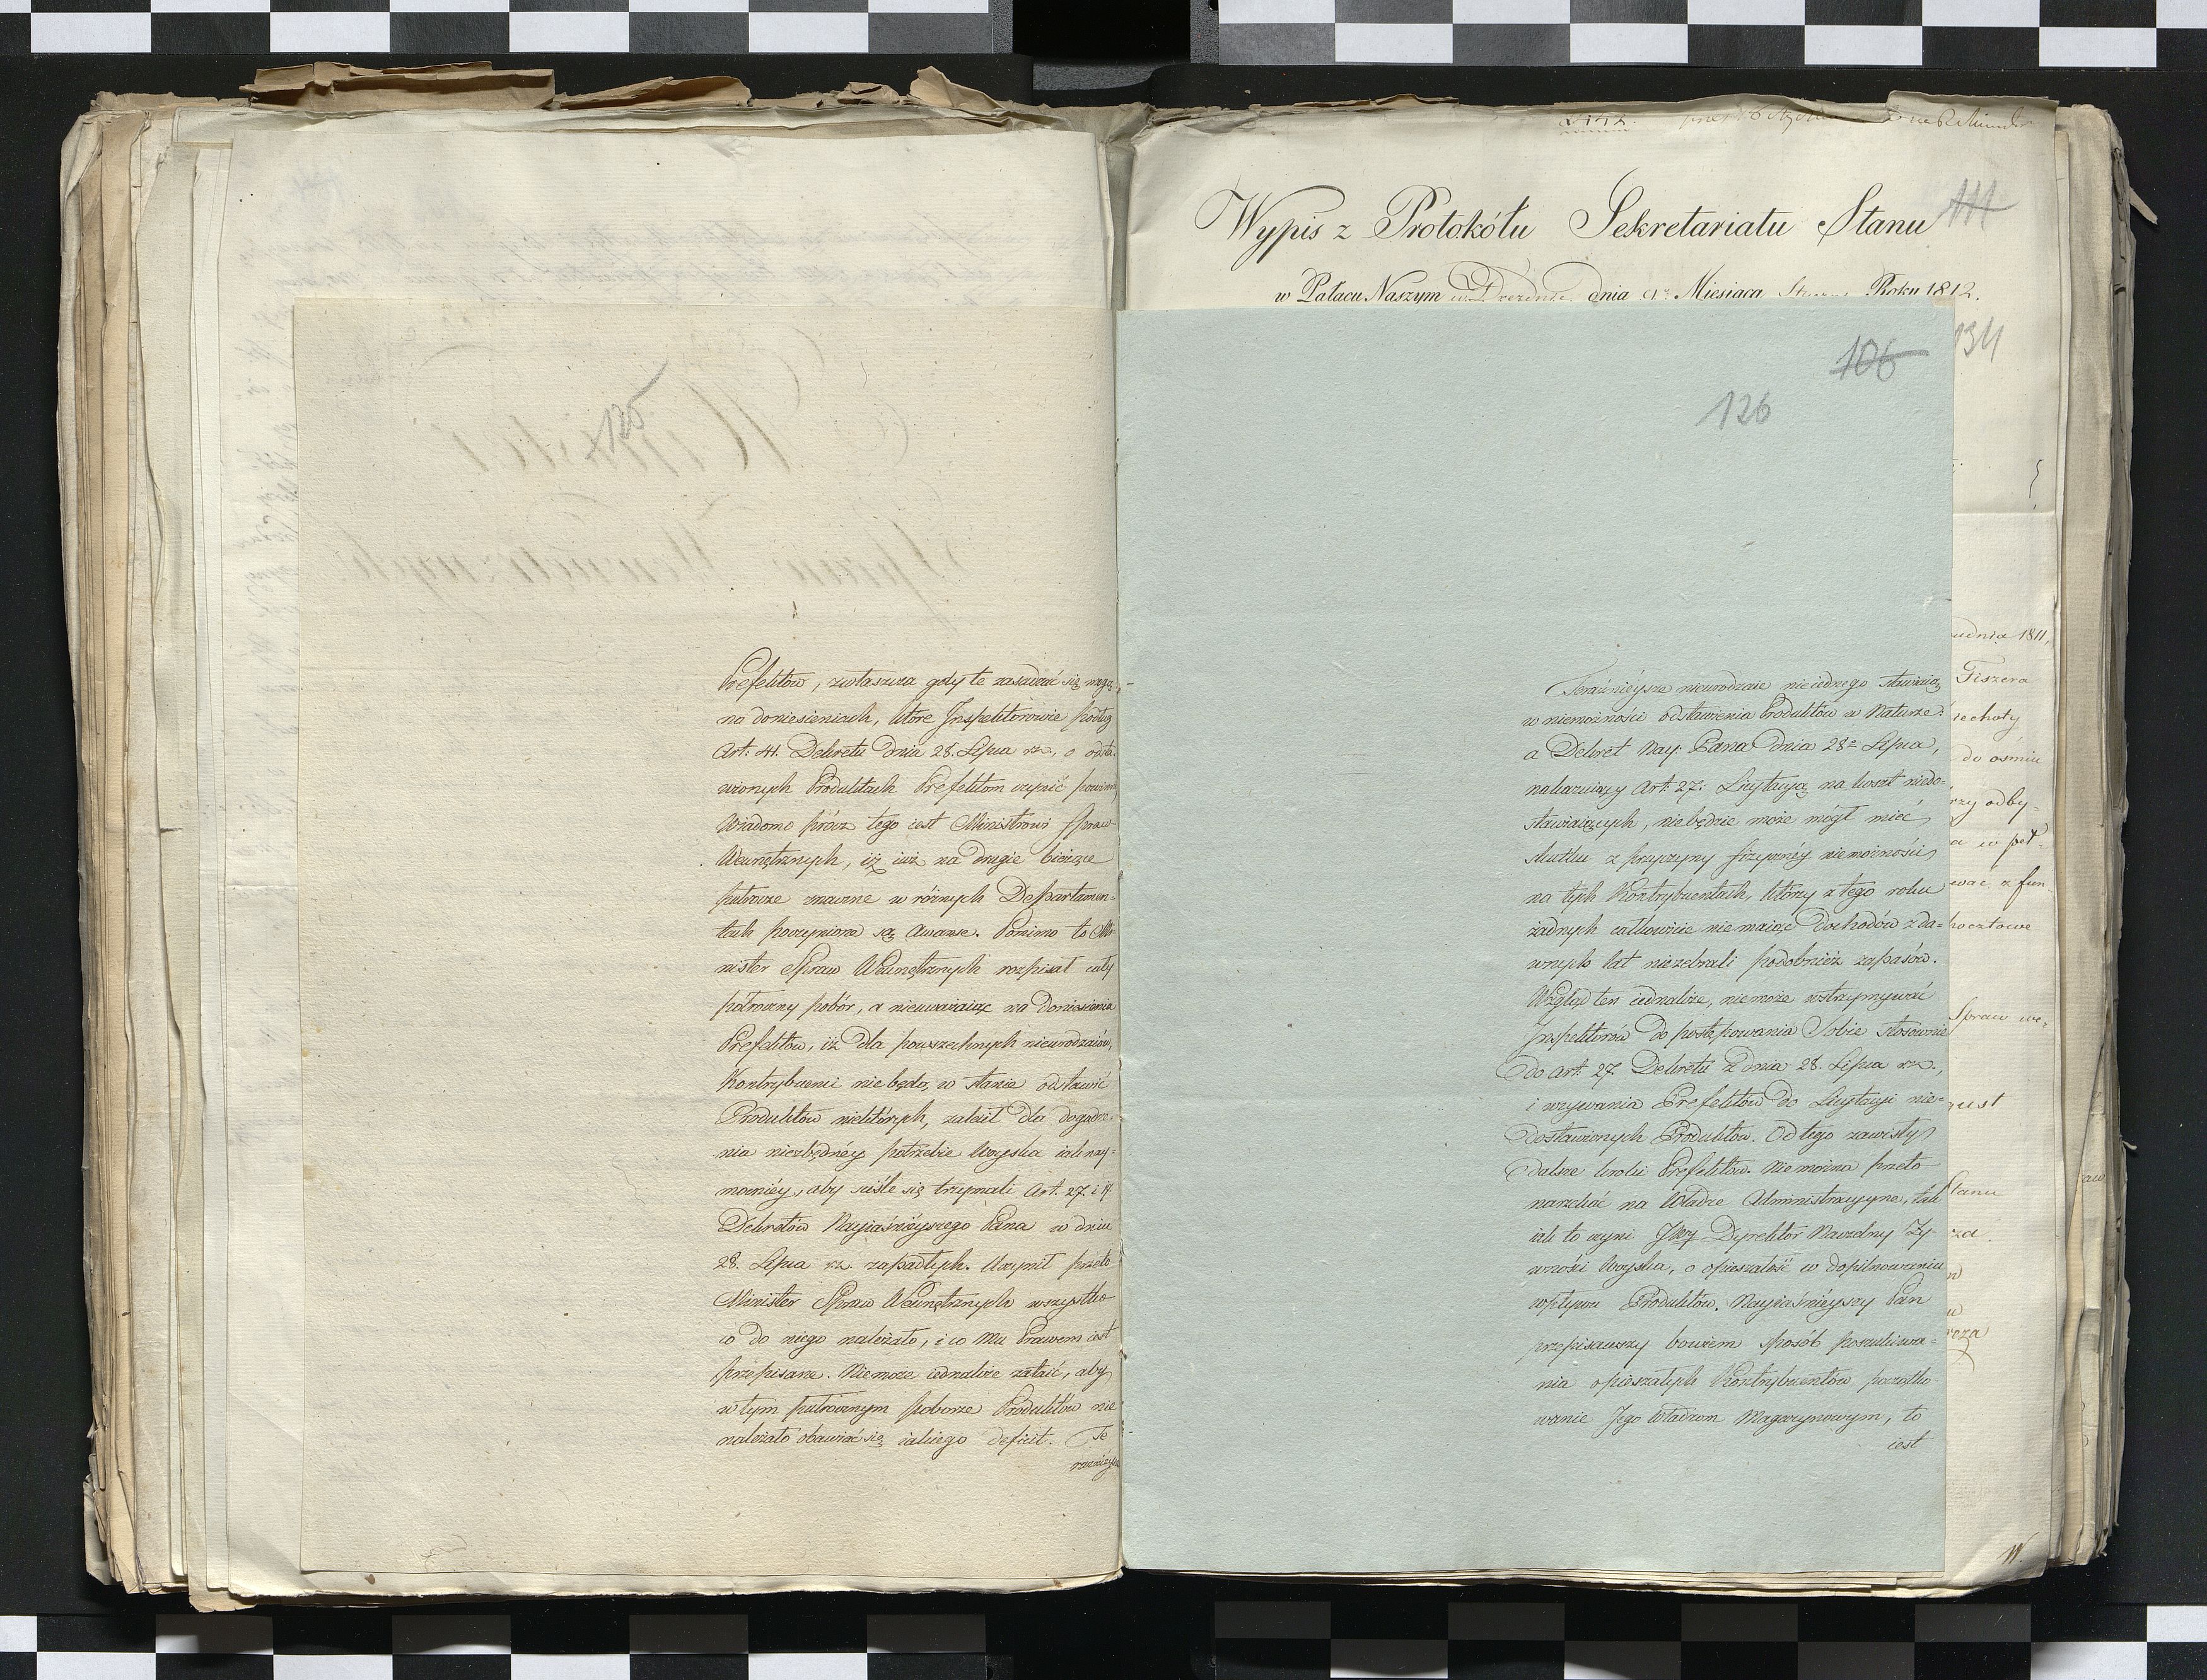 125
Prefektów, zwłaszcza gdy te zasadzać się mogą
na doniesieniach, które Inspektorowie podług
Art: 41. Dekretu dnia 28. Lipca rz., o odsta-
wionych Produktach Prefektom czynić powinni
Wiadomo prócz tego iest Ministrowi Spraw
Wewnętrznych, iż iuż na drugie bieżące
półrocze znaczne w różnych Departamen-
tach poczynione są Awanse. Pomimo to Mi-
nister Spraw Wewnętrznych rozpisał cały
półroczny pobór, a nieuważaiąc na doniesienia
Prefektów, iż dla powszechnych nieurodzaiów,
Kontrybuenci nie będą w stanie odstawić
Produktów niektórych, zalecił dla dogodze-
nia niezbędnéy potrzebie Woyska iak nay-
mocniéy, aby ściśle się trzymali Art. 27. i
Dekretów Nayiaśniéyszego Pana w dniu
28. Lipca rz. zapadłych. Uczynił przeto
Minister Spraw Wewnętrznych wszystko
co do niego należało, i co Mu Prawem iest
przepisane. Niemoże iednakże zataić, aby
w tym półrocznym poborze Produktów nie
należało obawiać się iakiego deficit. Te
raźniéysze
Wypis z Protokółu Sekretariatu Stanu
111
w Pałacu Naszym w Dreźnie dnia Miesiąca Roku 1812.
134
106
126
Teraźniéysze nieurodzaie niejednego stawiaią
w niemożności odstawienia Produktów w Naturze:
a Dekret Nay: Pana dnia 28º Lipca,
nakazuiący Art: 27: Licytacyą na koszt niedo-
stawiaiących, niebędzie może mógł mieć
skutku z przyczyny fizycznéy niemożności
na tych Kontrybuentach, którzy z tego roku
żadnych całkowicie nie maiąc Dochodów z da-
wnych lat niezebrali podobnież zapasów.
Wzgląd ten iednakże, niemoże wstrzymywać
Inspektorów do postępowania Sobie stosownie
do Art: 27. Dekretu Z dnia 28. Lipca rz.,
i wzywania Prefektów do Licytacyi nie-
dostawionych Produktów. Od tego zawisły
dalsze kroki Prefektów. Nie można przeto
narzekać na Władze Administracyyne, tak
iak to czyni JWny Dyrektor Naczelny Ży-
wności Woyska, o opieszałość w dopilnowaniu
wpływu Produktów. Nayiaśniéyszy Pan
przepisawszy bowiem sposób poszukiwa-
nia opieszałych Kontrybuentów, początko-
wanie Jego Władzom Magazynowym, to
iest
udnia 1811,
Tiszera
iechoty
do ośmiu
rzy odby-
a w peł-
wać z fun
pocztowe
Spraw we-
gust
Stanu
za